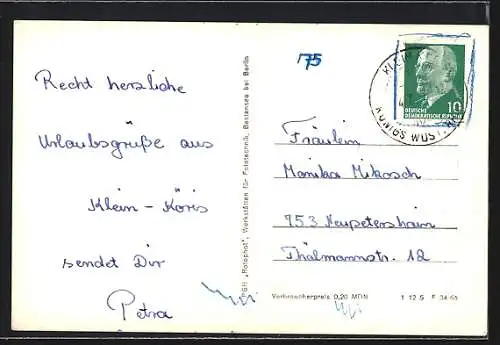 Recht herzliche
Urlaubsgrüße aus
Klein-Köris
sendet Dir
Petra
"Rotophot", Werkstätten für Fototechnik, Bestensee bei Berlin
175
KLEIN
KÖNIGS WUST
DEUTSCHE
DEMOKRATISCHE REPUBLIK
10
Fräulein
Monika Mikosch
753 Neupetershain
Thälmannstr. 12
Verbraucherpreis 0,20 MDN
1 12 5 F 34 65